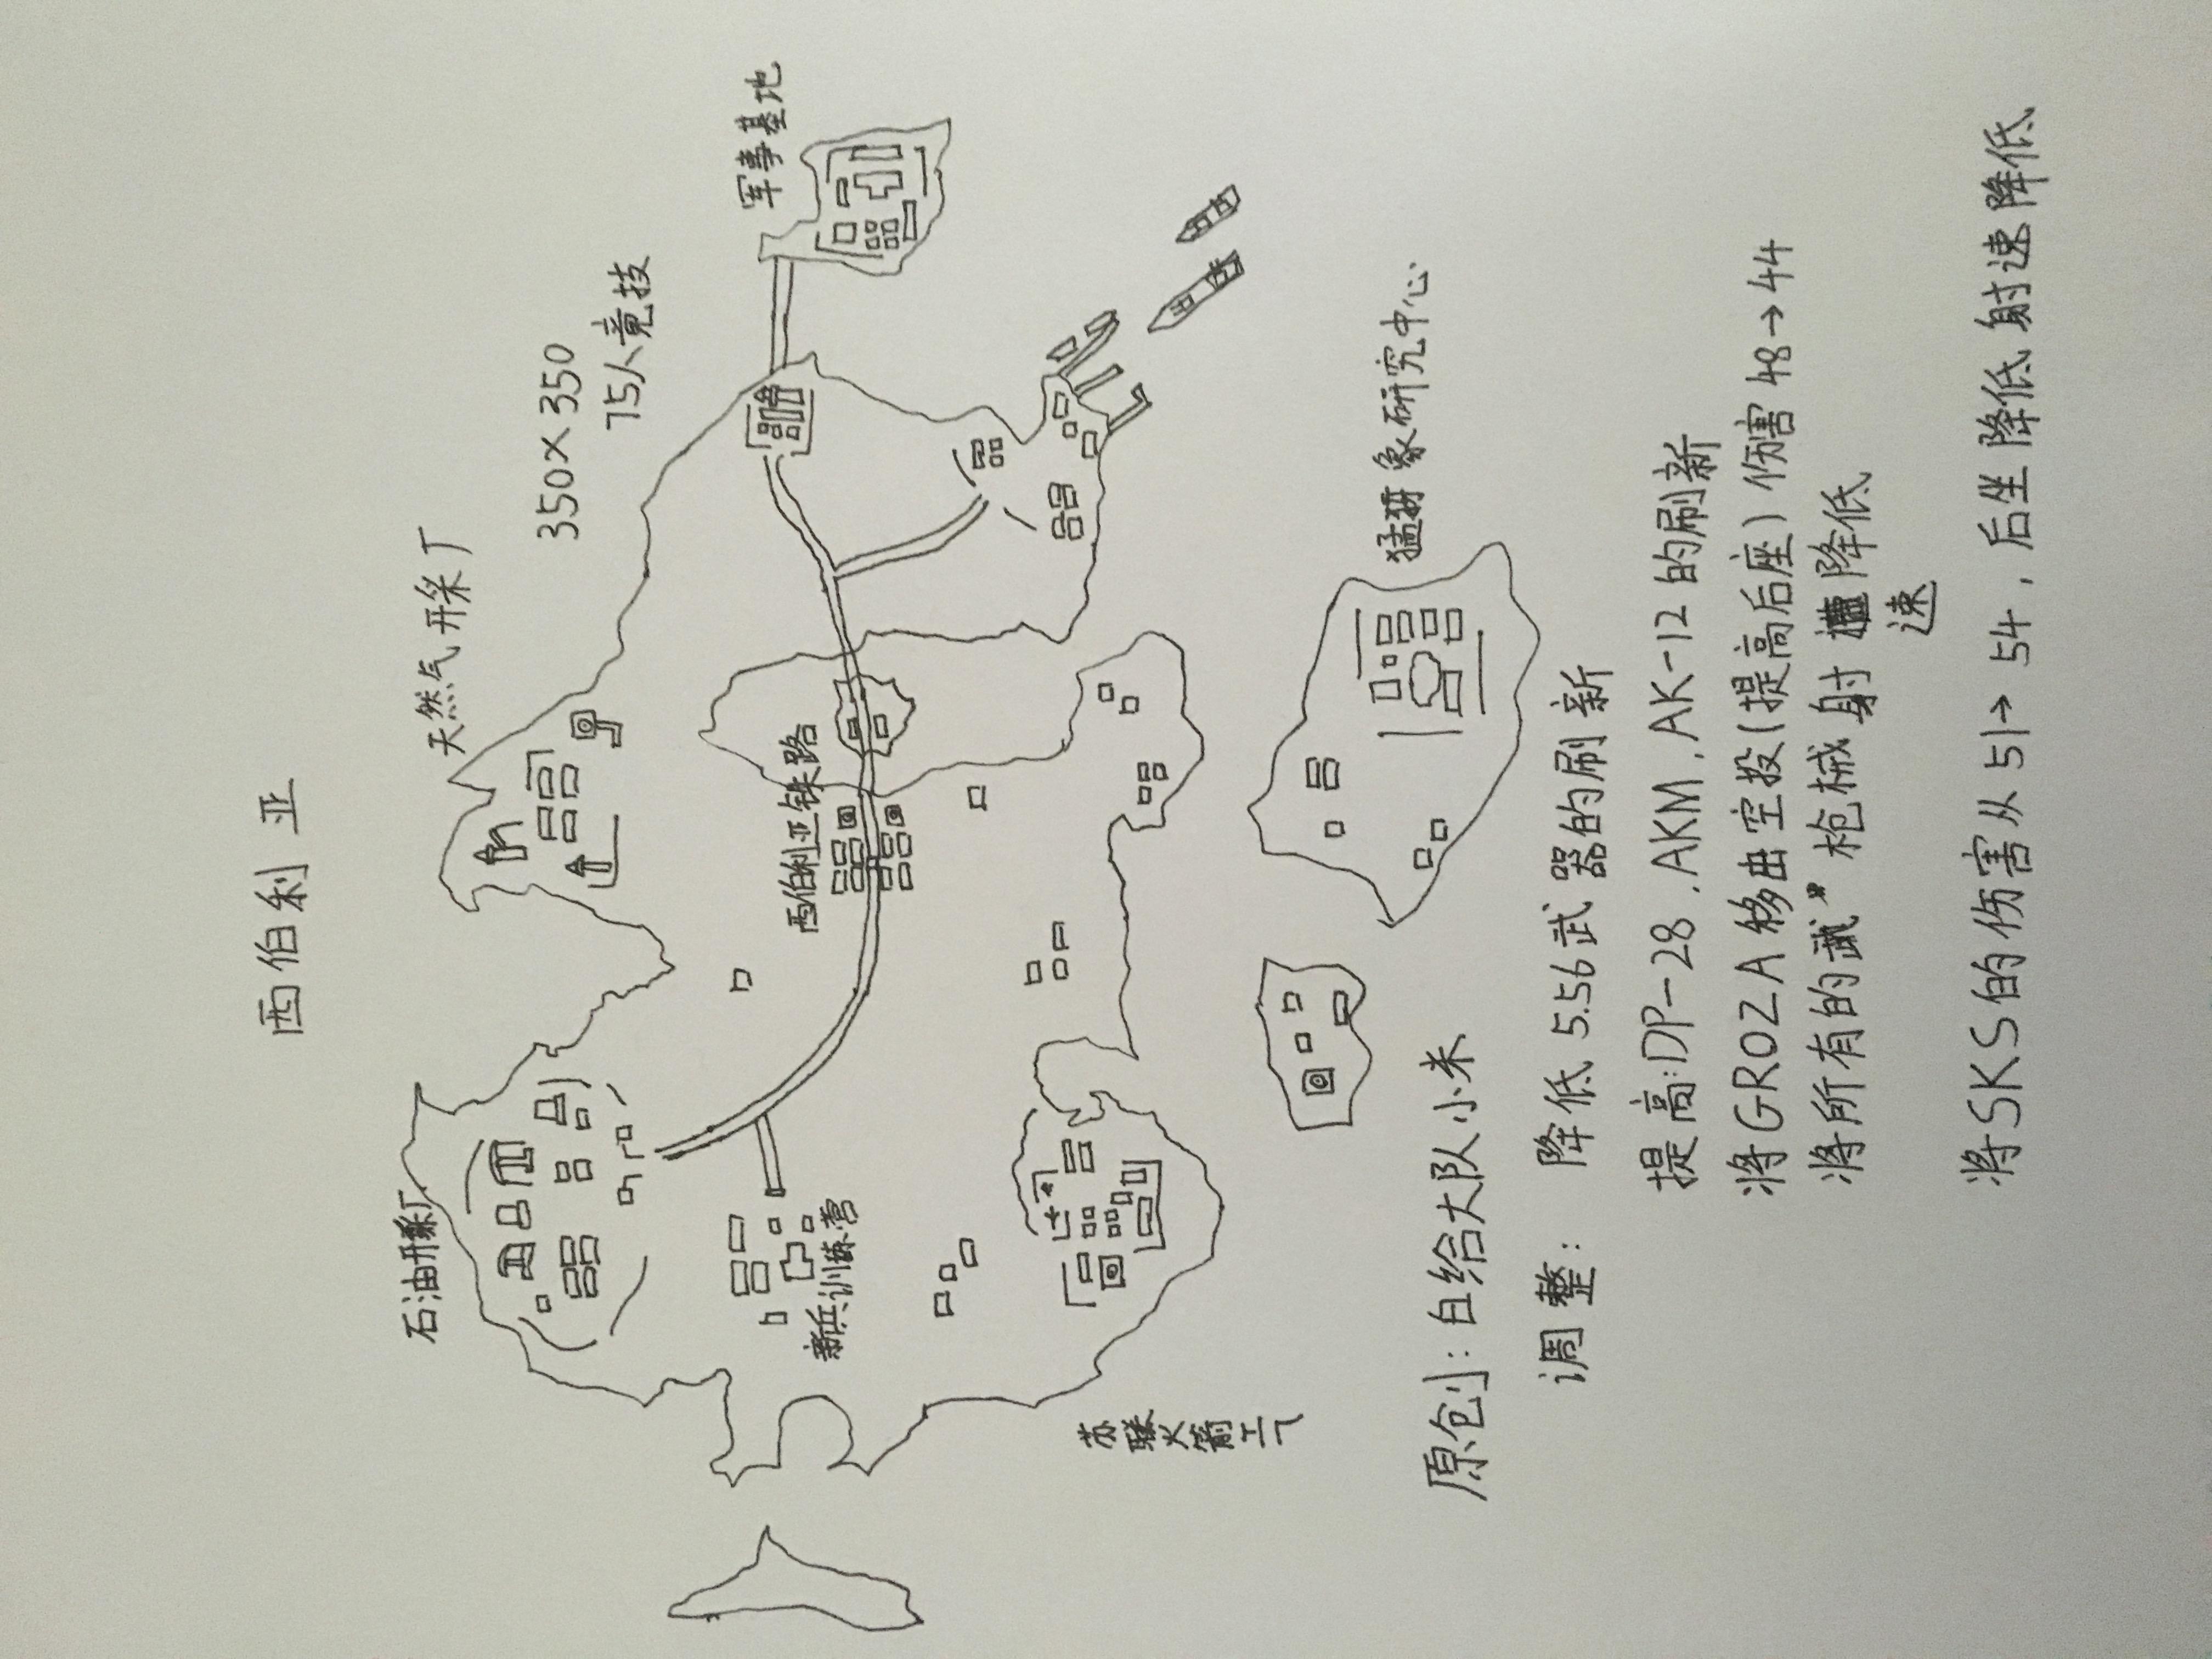 西伯利亚
350×350
75人竞技
天然气开采厂
军事基地
石油开采厂
西伯利亚铁路
新兵训练营
苏联火箭工厂
猛犸象研究中心
原创：白给大队小米
调整： 降低5.56武器的刷新
提高:DP-28,AKM,AK-12的刷新
将GROZA移出空投(提高后座)伤害48→44
将所有的 枪械射速降低
将SKS的伤害从51→54，后坐降低射速降低